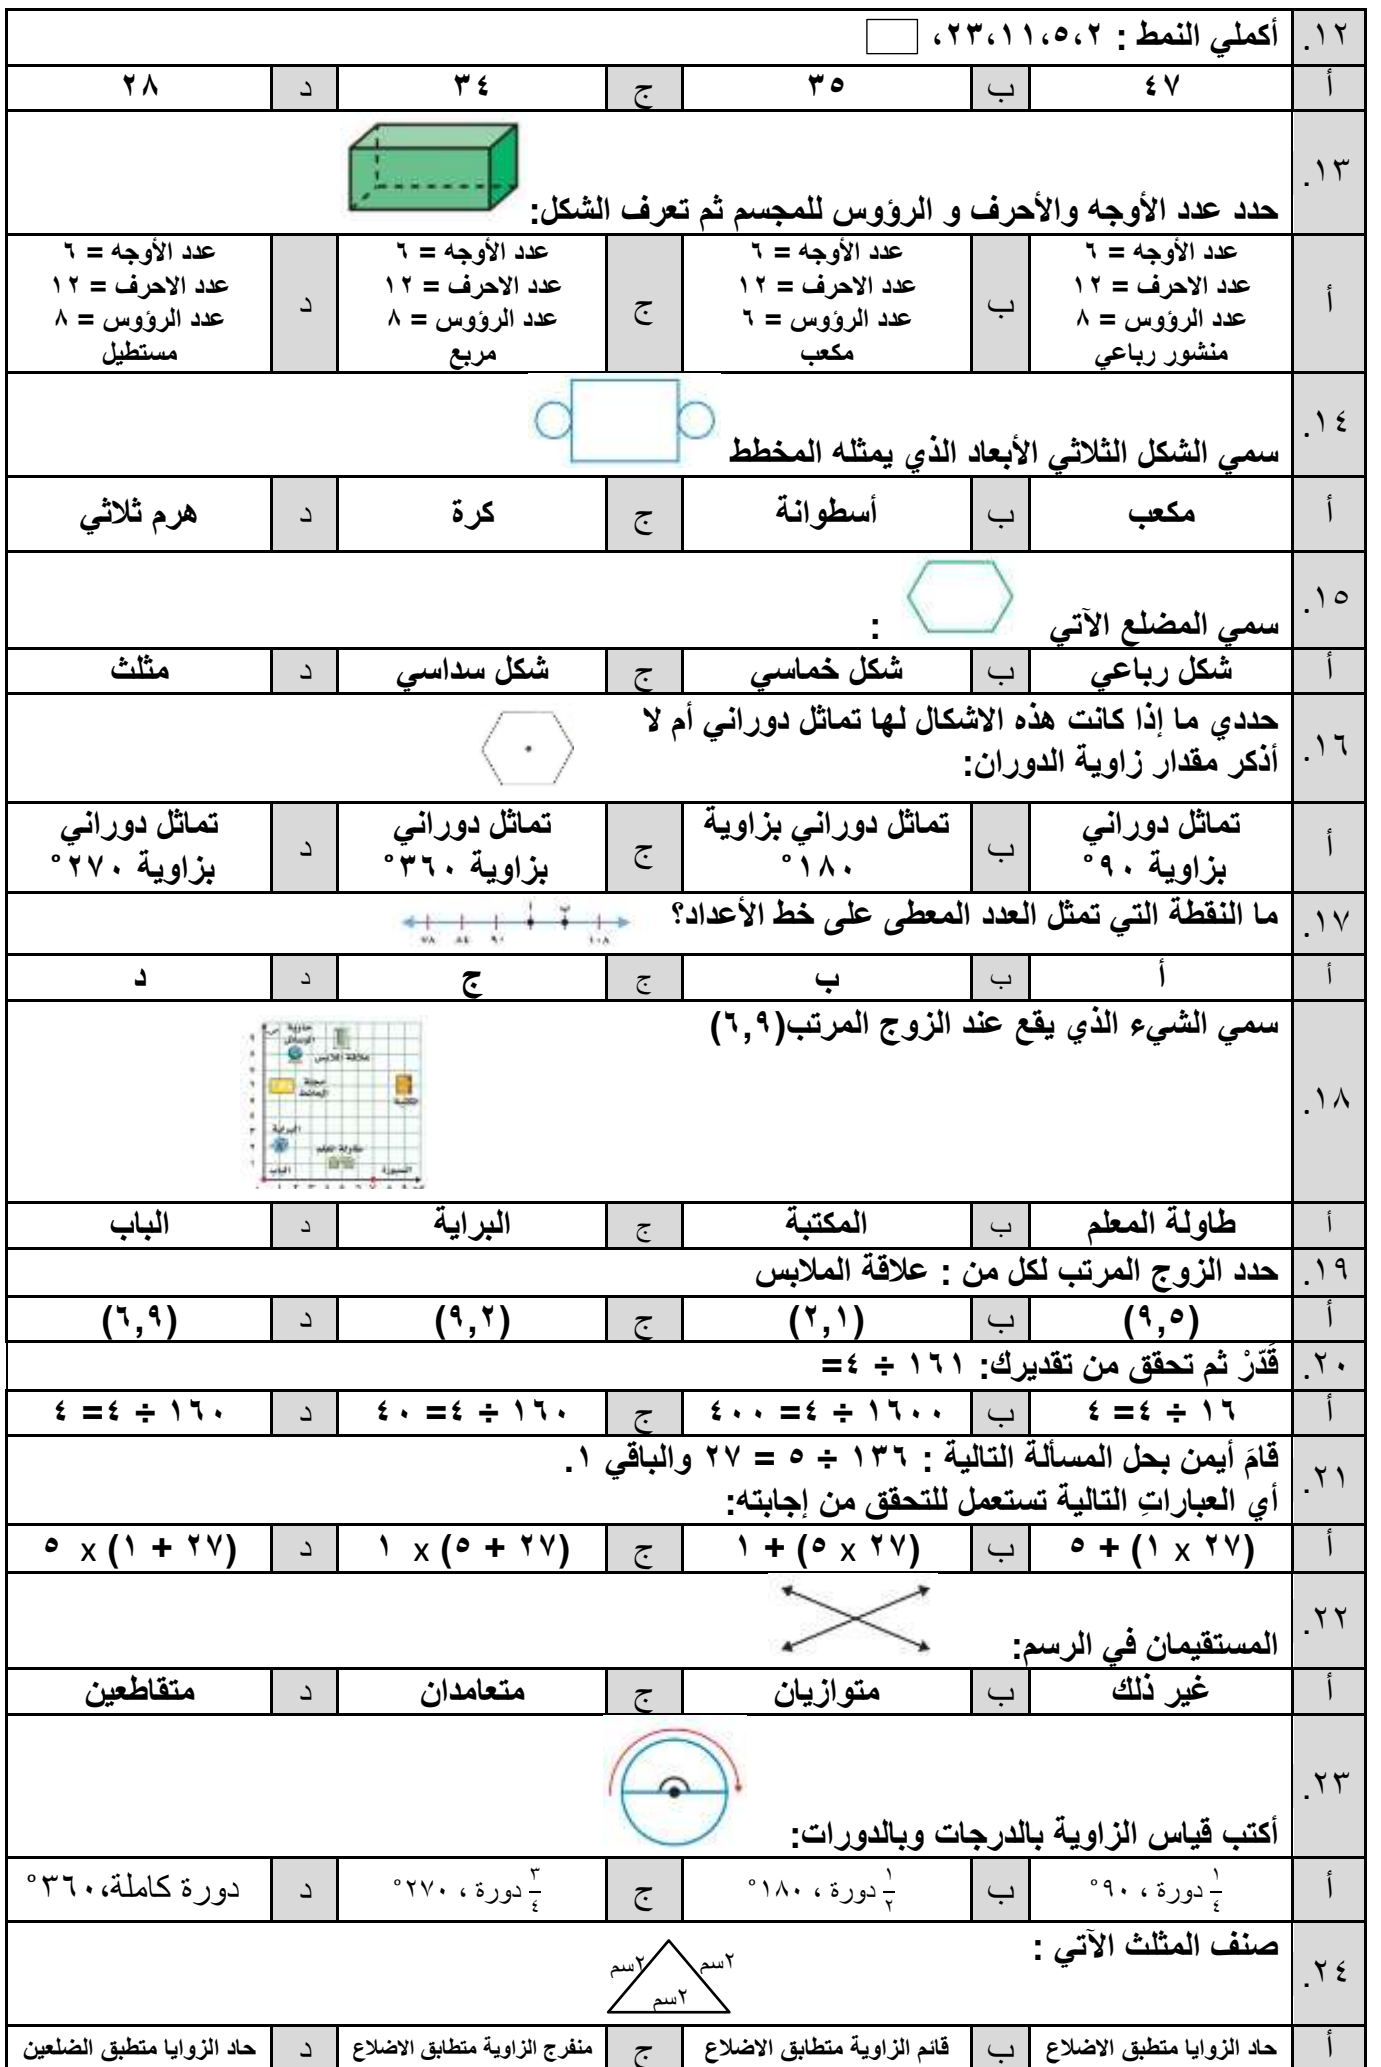 ١٢. أكملي النمط : ٢،٥،١١،٢٣،
أ ٤٧ ب ٣٥ ج ٣٤ د ٢٨
١٣. حدد عدد الأوجه والأحرف و الرؤوس للمجسم ثم تعرف الشكل:
أ عدد الأوجه = ٦
عدد الاحرف = ١٢
عدد الرؤوس = ٨
منشور رباعي
ب عدد الأوجه = ٦
عدد الاحرف = ١٢
عدد الرؤوس = ٦
مكعب
ج عدد الأوجه = ٦
عدد الاحرف = ١٢
عدد الرؤوس = ٨
مربع
د عدد الأوجه = ٦
عدد الاحرف = ١٢
عدد الرؤوس = ٨
مستطيل
١٤. سمي الشكل الثلاثي الأبعاد الذي يمثله المخطط
أ مكعب ب أسطوانة ج كرة د هرم ثلاثي
١٥. سمي المضلع الآتي :
أ شكل رباعي ب شكل خماسي ج شكل سداسي د مثلث
١٦. حددي ما إذا كانت هذه الاشكال لها تماثل دوراني أم لا
أذكر مقدار زاوية الدوران:
أ تماثل دوراني
بزاوية ٩٠°
ب تماثل دوراني بزاوية
١٨٠°
ج تماثل دوراني
بزاوية ٣٦٠°
د تماثل دوراني
بزاوية ٢٧٠°
١٧. ما النقطة التي تمثل العدد المعطى على خط الأعداد؟
أ ب
٧٨ ٨٤ ٩٠ ١٠٨
أ أ ب ب ج ج د د
١٨. سمي الشيء الذي يقع عند الزوج المرتب(٦,٩)
حاوية
الوسائل
علاقة الملابس
مجلة
الحائط
المكتبة
البراية
طاولة المعلم
الباب السبورة
أ طاولة المعلم ب المكتبة ج البراية د الباب
١٩. حدد الزوج المرتب لكل من : علاقة الملابس
أ (٩,٥) ب (٢,١) ج (٩,٢) د (٦,٩)
٢٠. قَدّرْ ثم تحقق من تقديرك: ١٦١ ÷ ٤=
أ ١٦ ÷ ٤= ٤ ب ١٦٠٠ ÷ ٤= ٤٠٠ ج ١٦٠ ÷ ٤= ٤٠ د ١٦٠ ÷ ٤= ٤
٢١. قامَ أيمن بحل المسألة التالية : ١٣٦ ÷ ٥ = ٢٧ والباقي ١.
أي العباراتِ التالية تستعمل للتحقق من إجابته:
أ (٢٧ x ١) + ٥ ب (٢٧ x ٥) + ١ ج (٢٧ + ٥) x ١ د (٢٧ + ١) x ٥
٢٢. المستقيمان في الرسم:
أ غير ذلك ب متوازيان ج متعامدان د متقاطعين
٢٣. أكتب قياس الزاوية بالدرجات وبالدورات:
أ ١/٤ دورة ، ٩٠° ب ١/٢ دورة ، ١٨٠° ج ٣/٤ دورة ، ٢٧٠° د دورة كاملة،٣٦٠°
٢٤. صنف المثلث الآتي :
٢سم ٢سم
٢سم
أ حاد الزوايا متطبق الاضلاع ب قائم الزاوية متطابق الاضلاع ج منفرج الزاوية متطابق الاضلاع د حاد الزوايا متطبق الضلعين